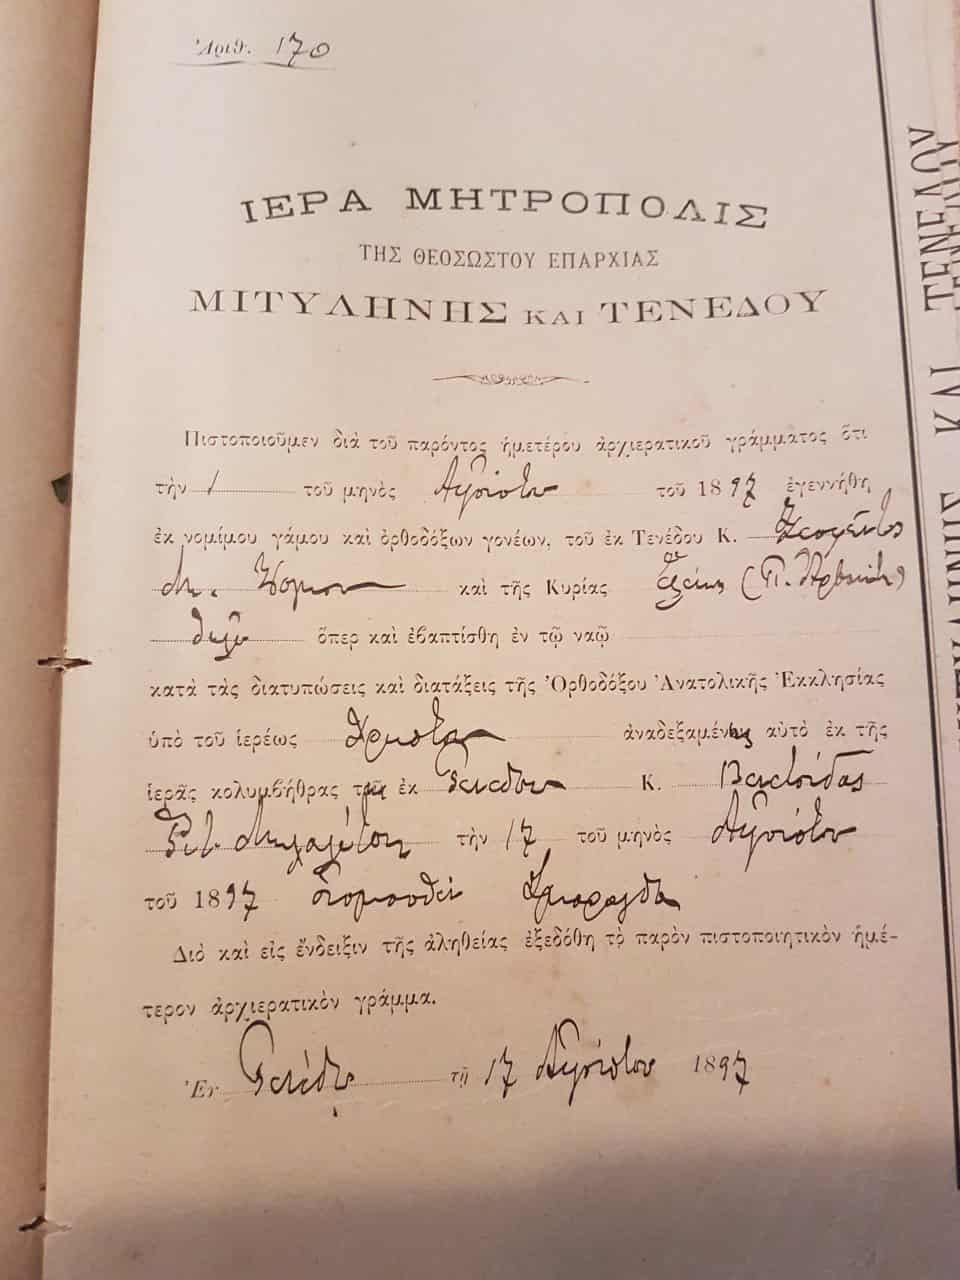 Ἀριθ. 170
ΙΕΡΑ ΜΗΤΡΟΠΟΛΙΣ
ΤΗΣ ΘΕΟΣΩΣΤΟΥ ΕΠΑΡΧΙΑΣ
ΜΙΤΥΛΗΝΗΣ ΚΑΙ ΤΕΝΕΔΟΥ
Πιστοποιοῦμεν διὰ τοῦ παρόντος ἡμετέρου ἀρχιερατικοῦ γράμματος ὅτι
τὴν 1 τοῦ μηνὸς Αὐγούστου τοῦ 1897 ἐγεννήθη
ἐκ νομίμου γάμου καὶ ὀρθοδόξων γονέων, τοῦ ἐκ Τενέδου Κ.
καὶ τῆς Κυρίας
θῆλυ ὅπερ καὶ ἐβαπτίσθη ἐν τῷ ναῷ
κατὰ τὰς διατυπώσεις καὶ διατάξεις τῆς Ὀρθοδόξου Ἀνατολικῆς Ἐκκλησίας
ὑπὸ τοῦ ἱερέως Χρήστου ἀναδεξαμένης αὐτὸ ἐκ τῆς
ἱερᾶς κολυμβήθρας τῆς ἐκ Τενέδου Κ.
τὴν 17 τοῦ μηνὸς Αὐγούστου
τοῦ 1897 Σμαράγδα
Διὸ καὶ εἰς ἔνδειξιν τῆς ἀληθείας ἐξεδόθη τὸ παρὸν πιστοποιητικὸν ἡμέ-
τερον ἀρχιερατικὸν γράμμα.
Ἐν Τενέδῳ τῇ 17 Αὐγούστου 1897
ΚΑΙ ΤΕΝΕΔΟΥ